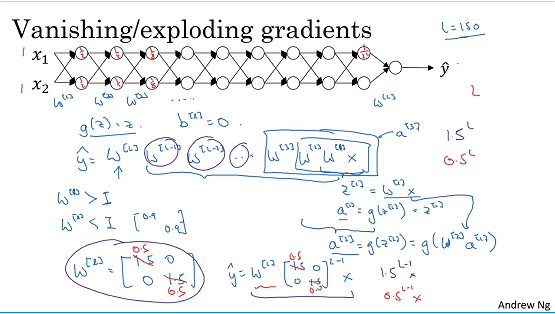 Vanishing/exploding gradients
L=150
1 x₁
1 x₂
ŷ
w^[1] w^[2] w^[3] ..... w^[L]
L
g(z)=z. b^[l]=0.
ŷ = w^[L] w^[L-1] w^[L-2] ... w^[3] w^[2] w^[1] x
a^[3]
1.5^L
0.5^L
z^[1] = w^[1] x
a^[1] = g(z^[1]) = z^[1]
a^[2] = g(z^[2]) = g(w^[2] a^[1])
w^[l] > I
w^[l] < I [0.9 0.9]
w^[l] = [1.5 0 0 1.5] 0.5 0.5
ŷ = w^[L] [1.5 0 0 1.5]^L-1 x 0.5
1.5^L-1 x
0.5^L-1 x
Andrew Ng